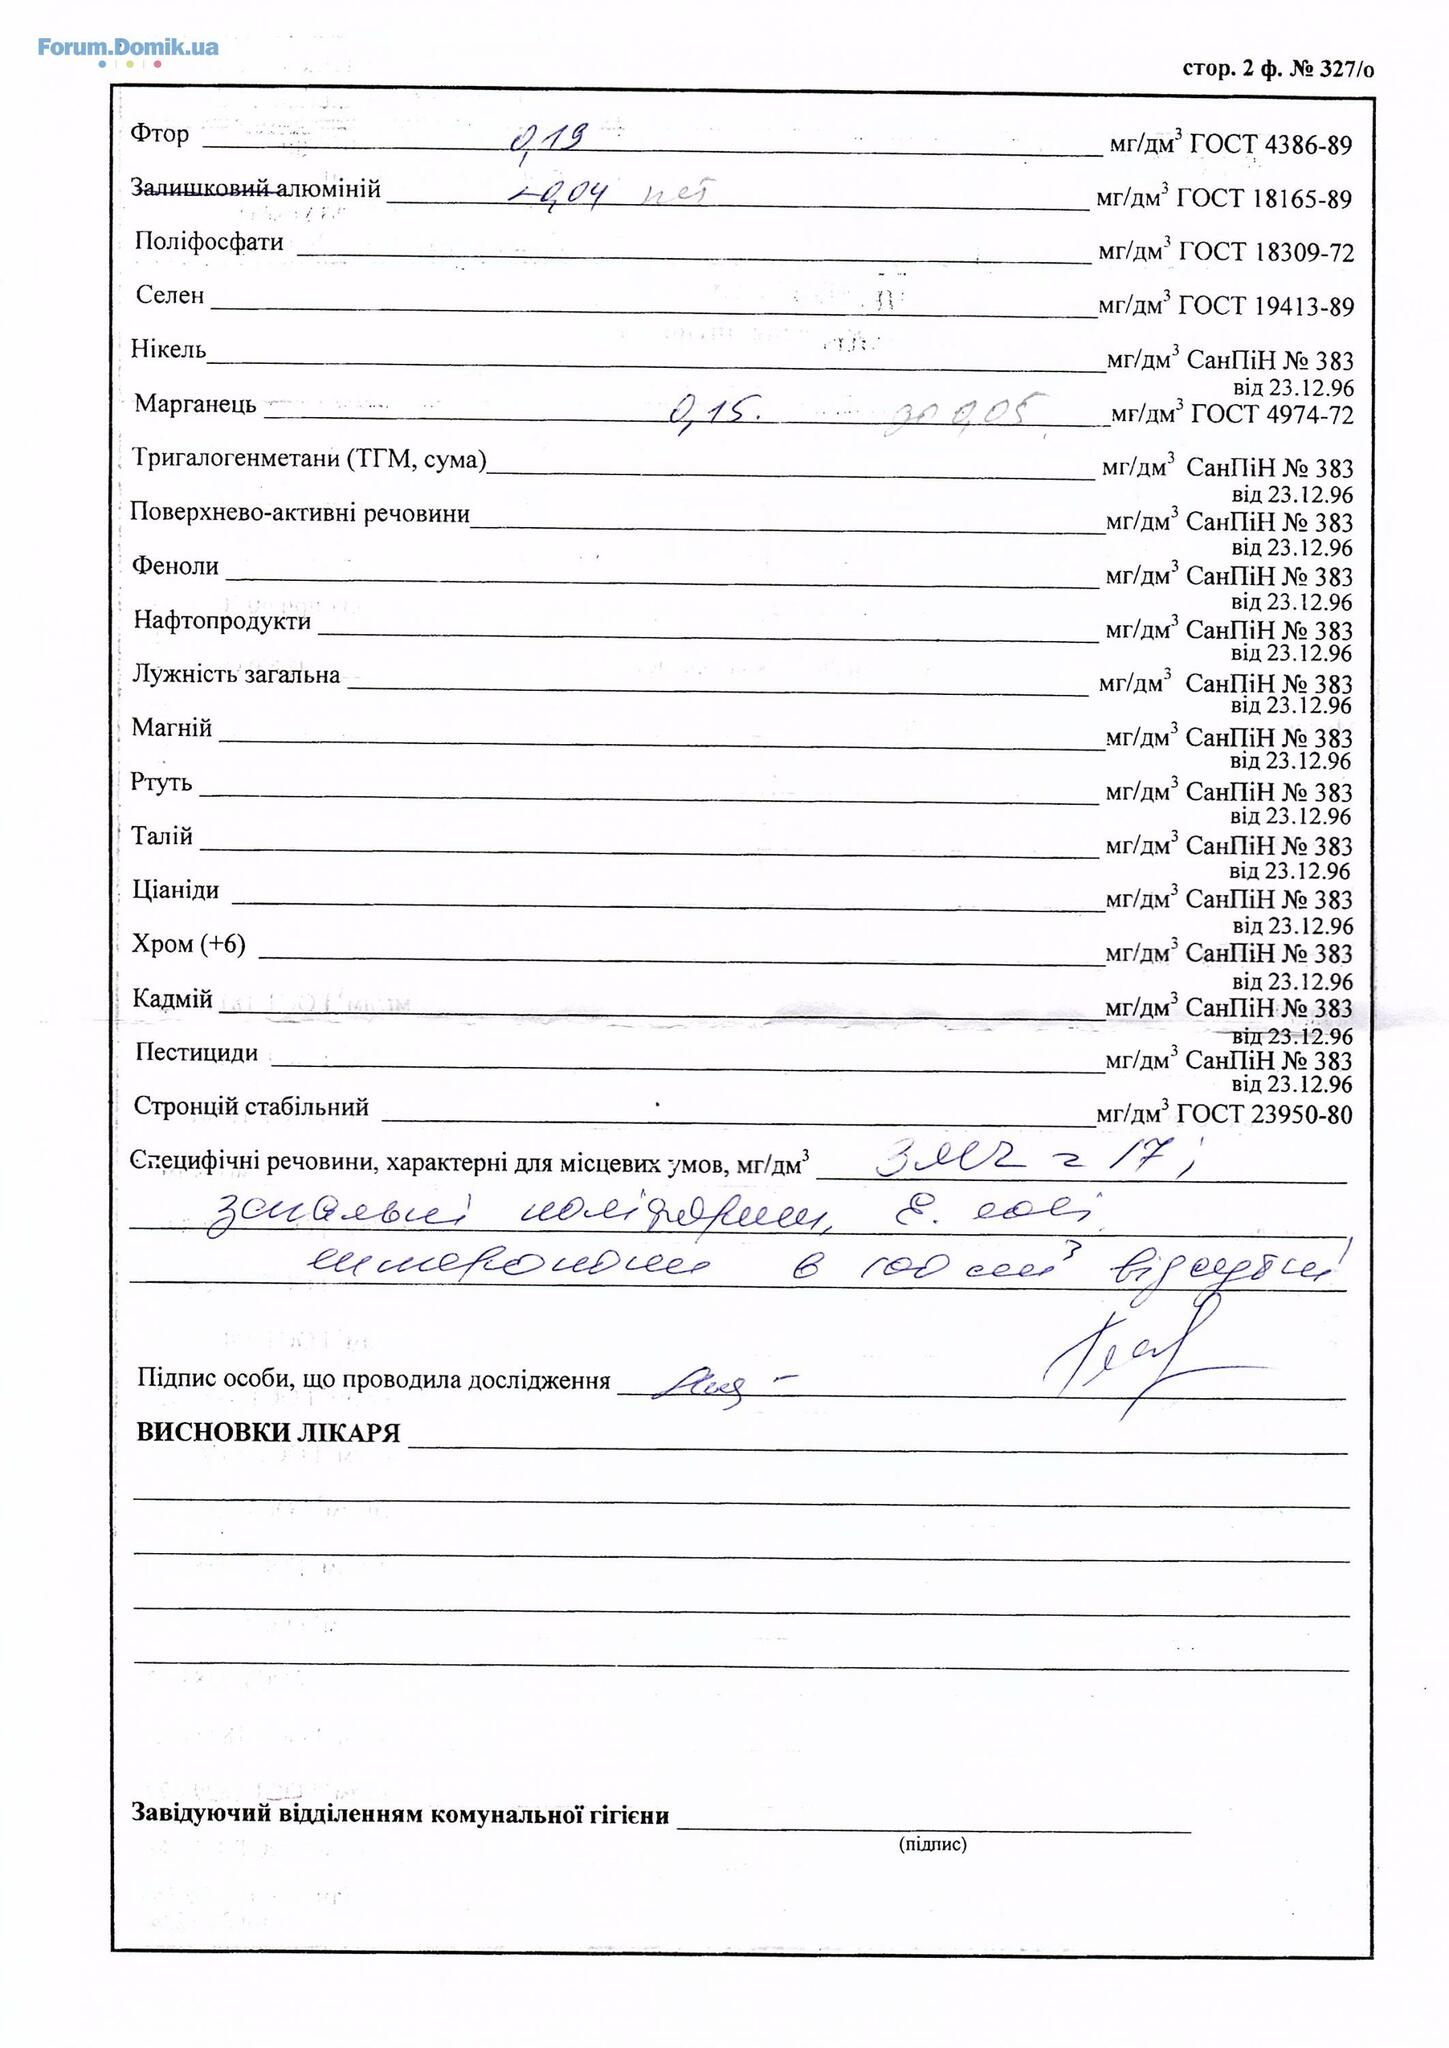 Forum.Domik.ua
стор. 2 ф. № 327/о
Фтор 0,19 мг/дм³ ГОСТ 4386-89
Залишковий алюміній <0,04 нет мг/дм³ ГОСТ 18165-89
Поліфосфати мг/дм³ ГОСТ 18309-72
Селен мг/дм³ ГОСТ 19413-89
Нікель мг/дм³ СанПіН № 383
від 23.12.96
Марганець 0,15. до 0,05 мг/дм³ ГОСТ 4974-72
Тригалогенметани (ТГМ, сума) мг/дм³ СанПіН № 383
від 23.12.96
Поверхнево-активні речовини мг/дм³ СанПіН № 383
від 23.12.96
Феноли мг/дм³ СанПіН № 383
від 23.12.96
Нафтопродукти мг/дм³ СанПіН № 383
від 23.12.96
Лужність загальна мг/дм³ СанПіН № 383
від 23.12.96
Магній мг/дм³ СанПіН № 383
від 23.12.96
Ртуть мг/дм³ СанПіН № 383
від 23.12.96
Талій мг/дм³ СанПіН № 383
від 23.12.96
Ціаніди мг/дм³ СанПіН № 383
від 23.12.96
Хром (+6) мг/дм³ СанПіН № 383
від 23.12.96
Кадмій мг/дм³ СанПіН № 383
від 23.12.96
Пестициди мг/дм³ СанПіН № 383
від 23.12.96
Стронцій стабільний мг/дм³ ГОСТ 23950-80
Специфічні речовини, характерні для місцевих умов, мг/дм³ ЗМЧ = 17;
загальні коліформи, E. coli,
ентерококи в 100 см³ відсутні
Підпис особи, що проводила дослідження
ВИСНОВКИ ЛІКАРЯ
Завідуючий відділенням комунальної гігієни
(підпис)